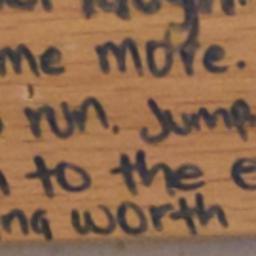 me more.
run. Jump
to the e
ng worth